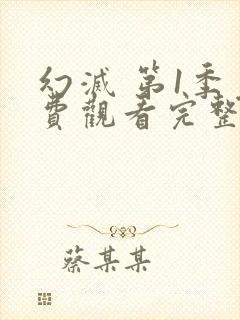 幻滅 第1季
費觀看完整
蔡某某